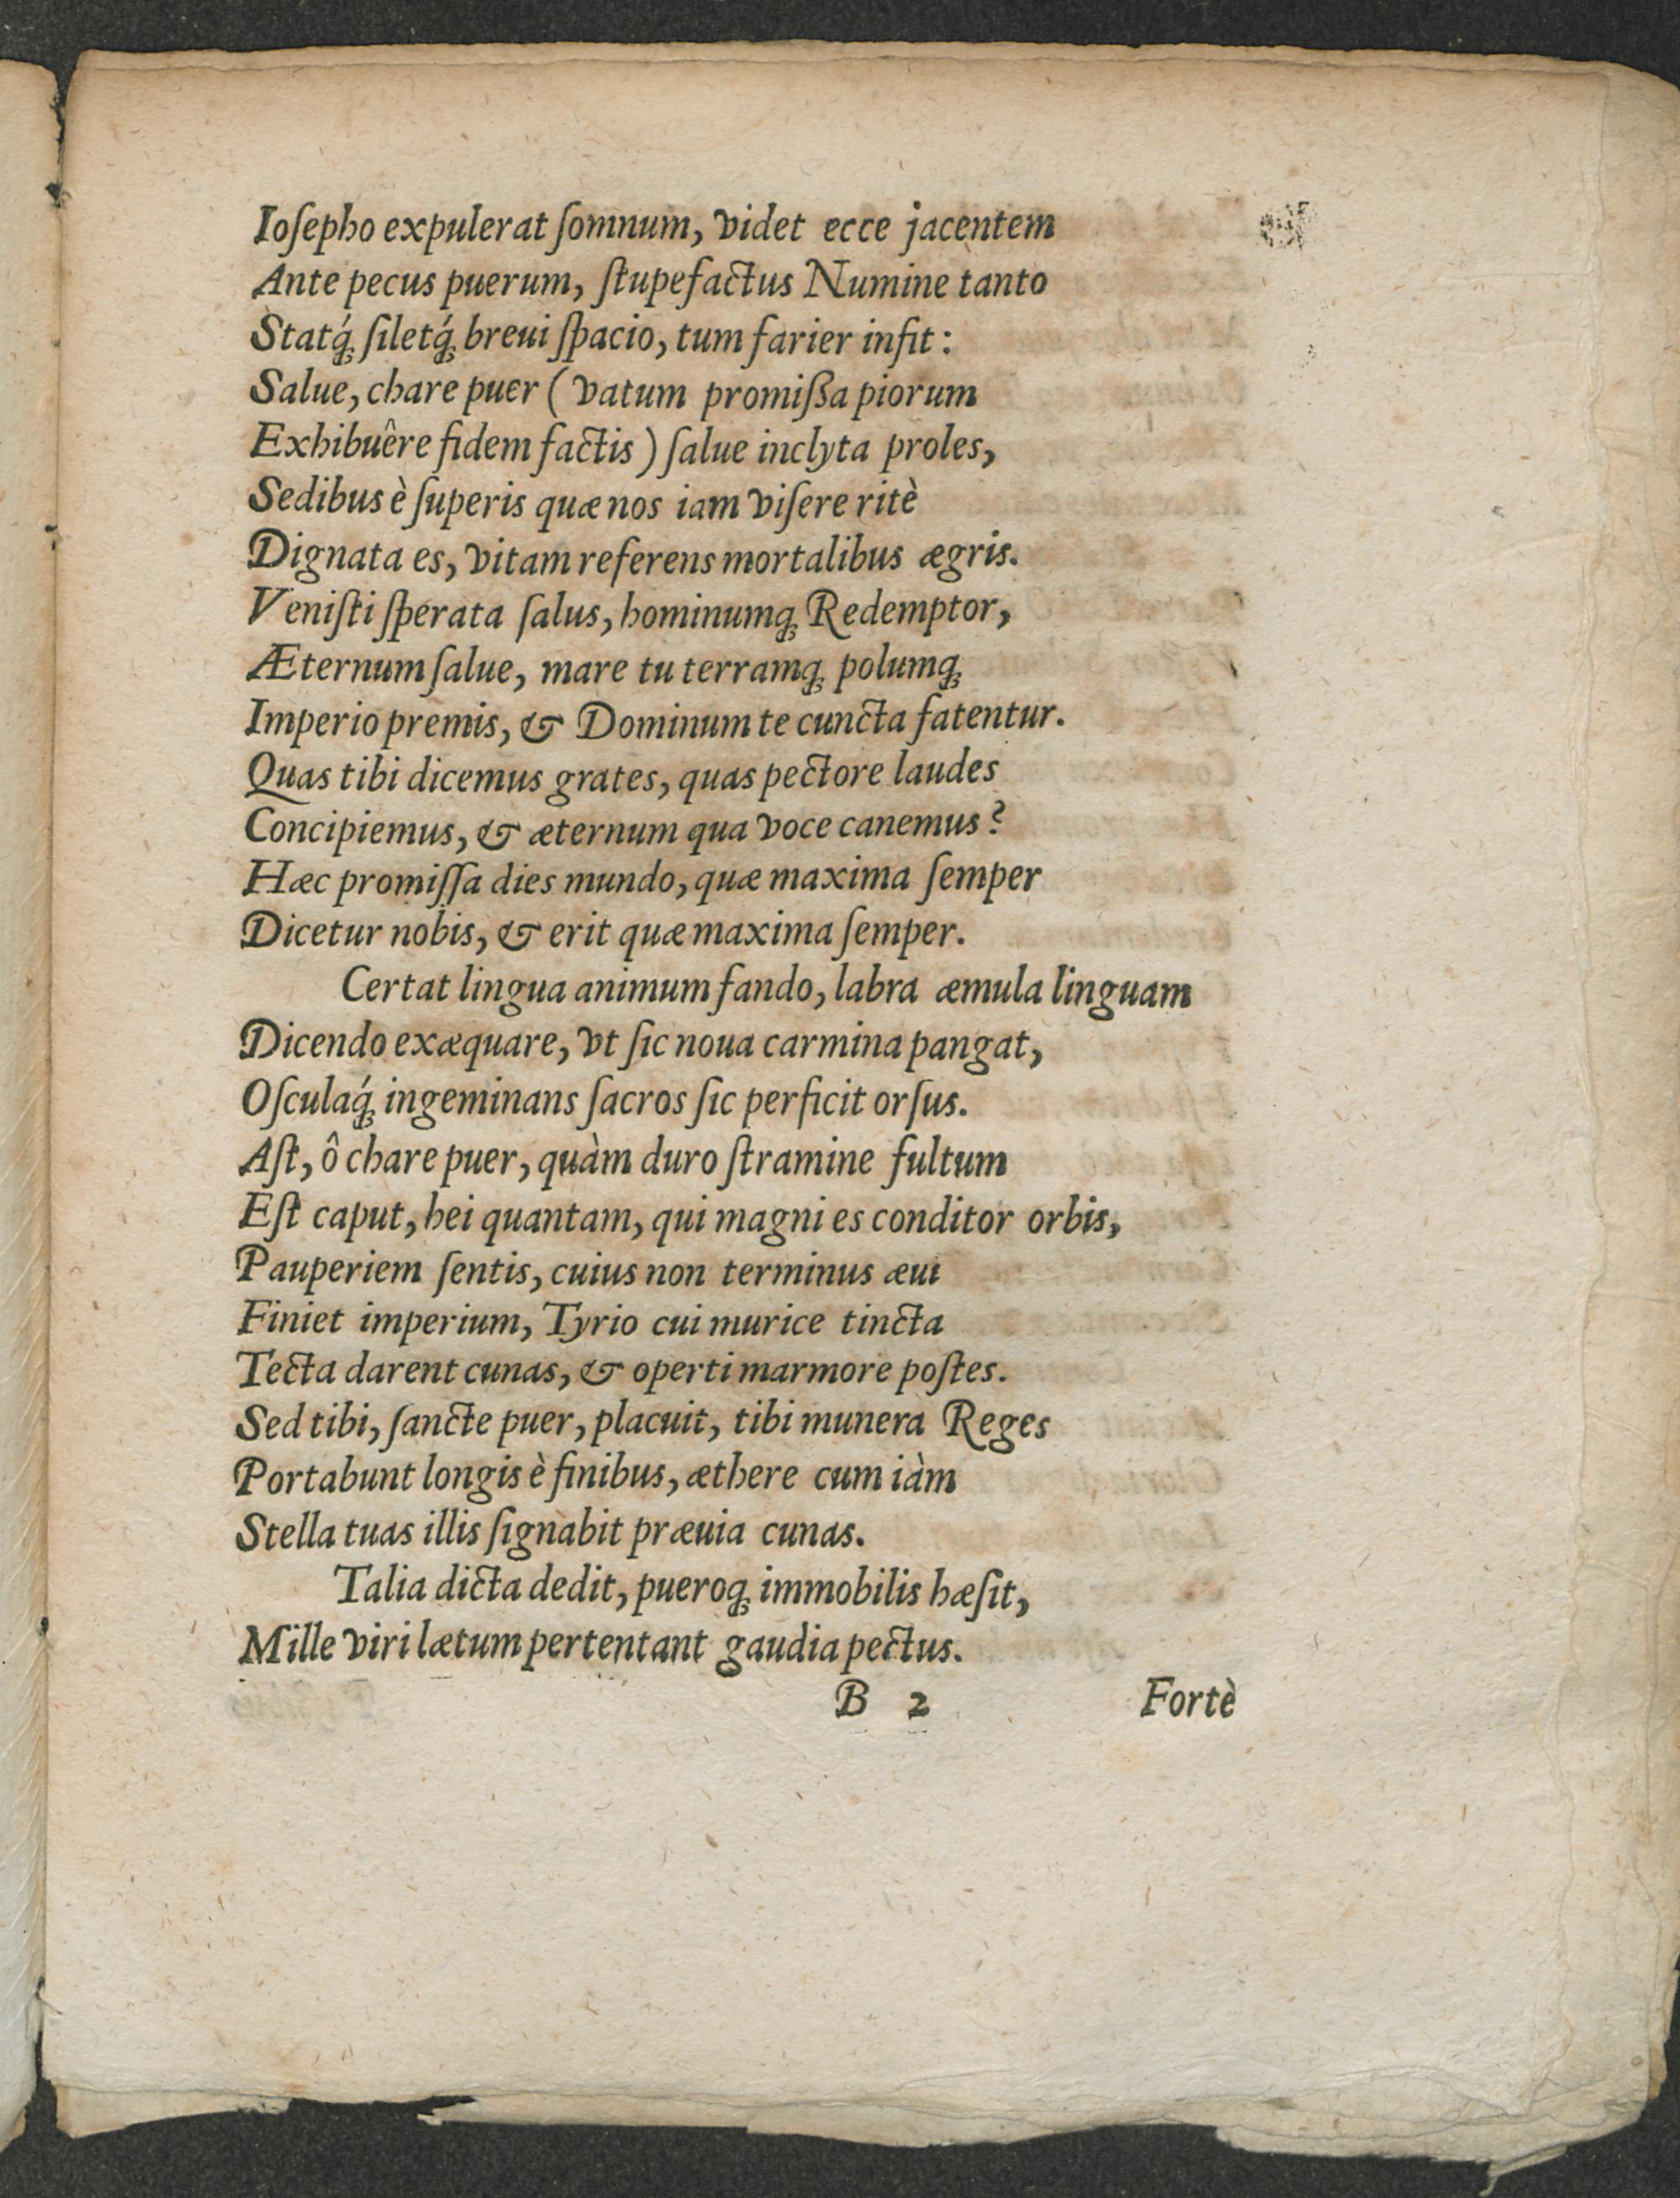 Ioſepho expulerat ſomnum, videt ecce jacentem
Ante pecus puerum, ſtupefactus Numine tanto
Statq́ꝫ ſiletq́ꝫ breui ſpacio, tum farier infit:
Salue, chare puer (vatum promißa piorum
Exhibuêre fidem factis) ſalue inclyta proles,
Sedibus è ſuperis quæ nos iam viſere ritè
Dignata es, vitam referens mortalibus ægris.
Veniſti ſperata ſalus, hominumqꝫ Redemptor,
Æternum ſalue, mare tu terramqꝫ polumqꝫ
Imperio premis, & Dominum te cuncta fatentur.
Quas tibi dicemus grates, quas pectore laudes
Concipiemus, & æternum qua voce canemus?
Hæc promiſſa dies mundo, quæ maxima ſemper
Dicetur nobis, & erit quæ maxima ſemper.
Certat lingua animum fando, labra æmula linguam
Dicendo exæquare, vt ſic noua carmina pangat,
Oſculaq́ꝫ ingeminans ſacros ſic perficit orſus.
Aſt, ô chare puer, quàm duro ſtramine fultum
Eſt caput, hei quantam, qui magni es conditor orbis,
Pauperiem ſentis, cuius non terminus æui
Finiet imperium, Tyrio cui murice tincta
Tecta darent cunas, & operti marmore poſtes.
Sed tibi, ſancte puer, placuit, tibi munera Reges
Portabunt longis è finibus, æthere cum iàm
Stella tuas illis ſignabit præuia cunas.
Talia dicta dedit, pueroqꝫ immobilis hæſit,
Mille viri lætum pertentant gaudia pectus.
B 2 Fortè